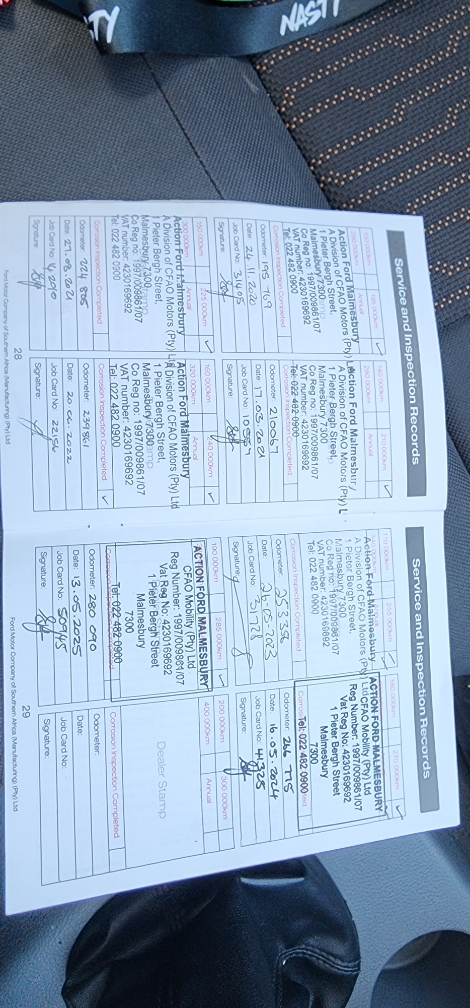 NASTY
TY
Service and Inspection Records
Action Ford Malmesbury
A Division of CFAO Motors (Pty) L
1 Pieter Bergh Street,
Malmesbury 7300
Co Reg no: 1997/009861/07
VAT number: 4230169692
Tel: 022 482 0900
Odometer: 195 769
Date: 24.11.2020
Job Card No: 31405
Signature:
210 000km
Annual
Action Ford Malmesbury
A Division of CFAO Motors (Pty) L
1 Pieter Bergh Street,
Malmesbury 7300
Co Reg no: 1997/009861/07
VAT number: 4230169692
Tel: 022 482 0900
Odometer: 210067
Date: 17.03.2021
Job Card No:
Signature:
150 000km
225 000km
300 000km
Annual
Action Ford Malmesbury
A Division of CFAO Motors (Pty) L
1 Pieter Bergh Street,
Malmesbury 7300
Co Reg no: 1997/009861/07
VAT number: 4230169692
Tel: 022 482 0900
Corrosion Inspection Completed
Odometer: 224 805
Date:
Job Card No:
Signature:
160 000km
320 000km
Annual
Action Ford Malmesbury
A Division of CFAO Motors (Pty) L
1 Pieter Bergh Street,
Malmesbury 7300
Co Reg no: 1997/009861/07
VAT number: 4230169692
Tel: 022 482 0900
Corrosion Inspection Completed
Odometer: 239861
Date: 20.04.2022
Job Card No:
Signature:
28
Ford Motor Company of Southern Africa (Manufacturing) (Pty) Ltd
Service and Inspection Records
170 000km
Action Ford Malmesbury
A Division of CFAO Motors (Pty) Ltd
1 Pieter Bergh Street,
Malmesbury 7300
Co Reg no: 1997/009861/07
VAT number: 4230169692
Tel: 022 482 0900
Corrosion Inspection Completed
Odometer:
Date: 24.05.2023
Job Card No: 31728
Signature:
270 000km
ACTION FORD MALMESBURY
CFAO Mobility (Pty) Ltd
Reg Number: 1997/009861/07
Vat Reg No: 4230169692
1 Pieter Bergh Street
Malmesbury
7300
Tel: 022 482 0900
Odometer: 266 775
Date: 16.05.2024
Job Card No: 41325
Signature:
190 000km
285 000km
ACTION FORD MALMESBURY
CFAO Mobility (Pty) Ltd
Reg Number: 1997/009861/07
Vat Reg No: 4230169692
1 Pieter Bergh Street
Malmesbury
7300
Tel: 022 482 0900
Odometer: 280 090
Date: 13.05.2025
Job Card No: 50945
Signature:
200 000km
300 000km
400 000km
Annual
Dealer Stamp
Corrosion Inspection Completed
Odometer:
Date:
Job Card No:
Signature:
29
Ford Motor Company of Southern Africa (Manufacturing) (Pty) Ltd